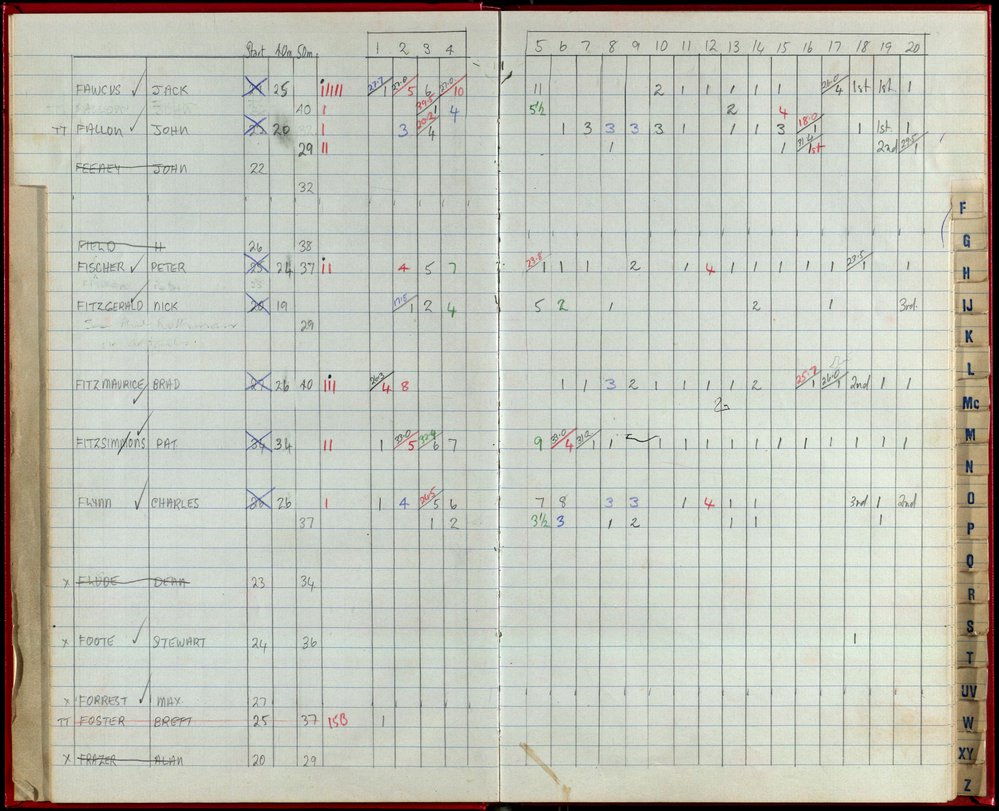 Start 40m 50m 1 2 3 4 5 6 7 8 9 10 11 12 13 14 15 16 17 18 19 20
FAWCUS JACK 25 27.7 1 5 6 10 11 2 1 1 1 1 1 26.0 4 1st 1st 1
40 1 4 5½ 2 4
TT FALLON JOHN 20 3 4 1 3 3 3 3 1 1 1 3 18.0 1 1 1st 1
29 1 1 31.4 1st 2nd 29.5 1
FEENEY JOHN 22
32
FIELD H 26 38
FISCHER PETER 24 37 4 5 7 1 1 1 2 1 4 1 1 1 1 1 1 1
FITZGERALD NICK 19 1 2 4 5 2 1 2 1 3rd
29
FITZMAURICE BRAD 26 40 26.3 4 8 1 1 3 2 1 1 1 1 2 25.2 1 26.0 1 2nd 1 1
2
FITZSIMMONS PAT 34 1 33.0 5 32.4 6 7 9 33.0 4 31.2 1 1 1 1 1 1 1 1 1 1 1 1
FLYNN CHARLES 26 1 4 26.5 5 6 7 8 3 3 1 4 1 1 3rd 1 2nd
37 1 2 3½ 3 1 2 1 1 1
X FLUDE DEAN 23 34
X FOOTE STEWART 24 36 1
X FORREST MAX 27
TT FOSTER BRETT 25 37 15B 1
X FRAZER ALAN 20 29
F
G
H
IJ
K
L
Mc
M
N
O
P
Q
R
S
T
UV
W
XY
Z